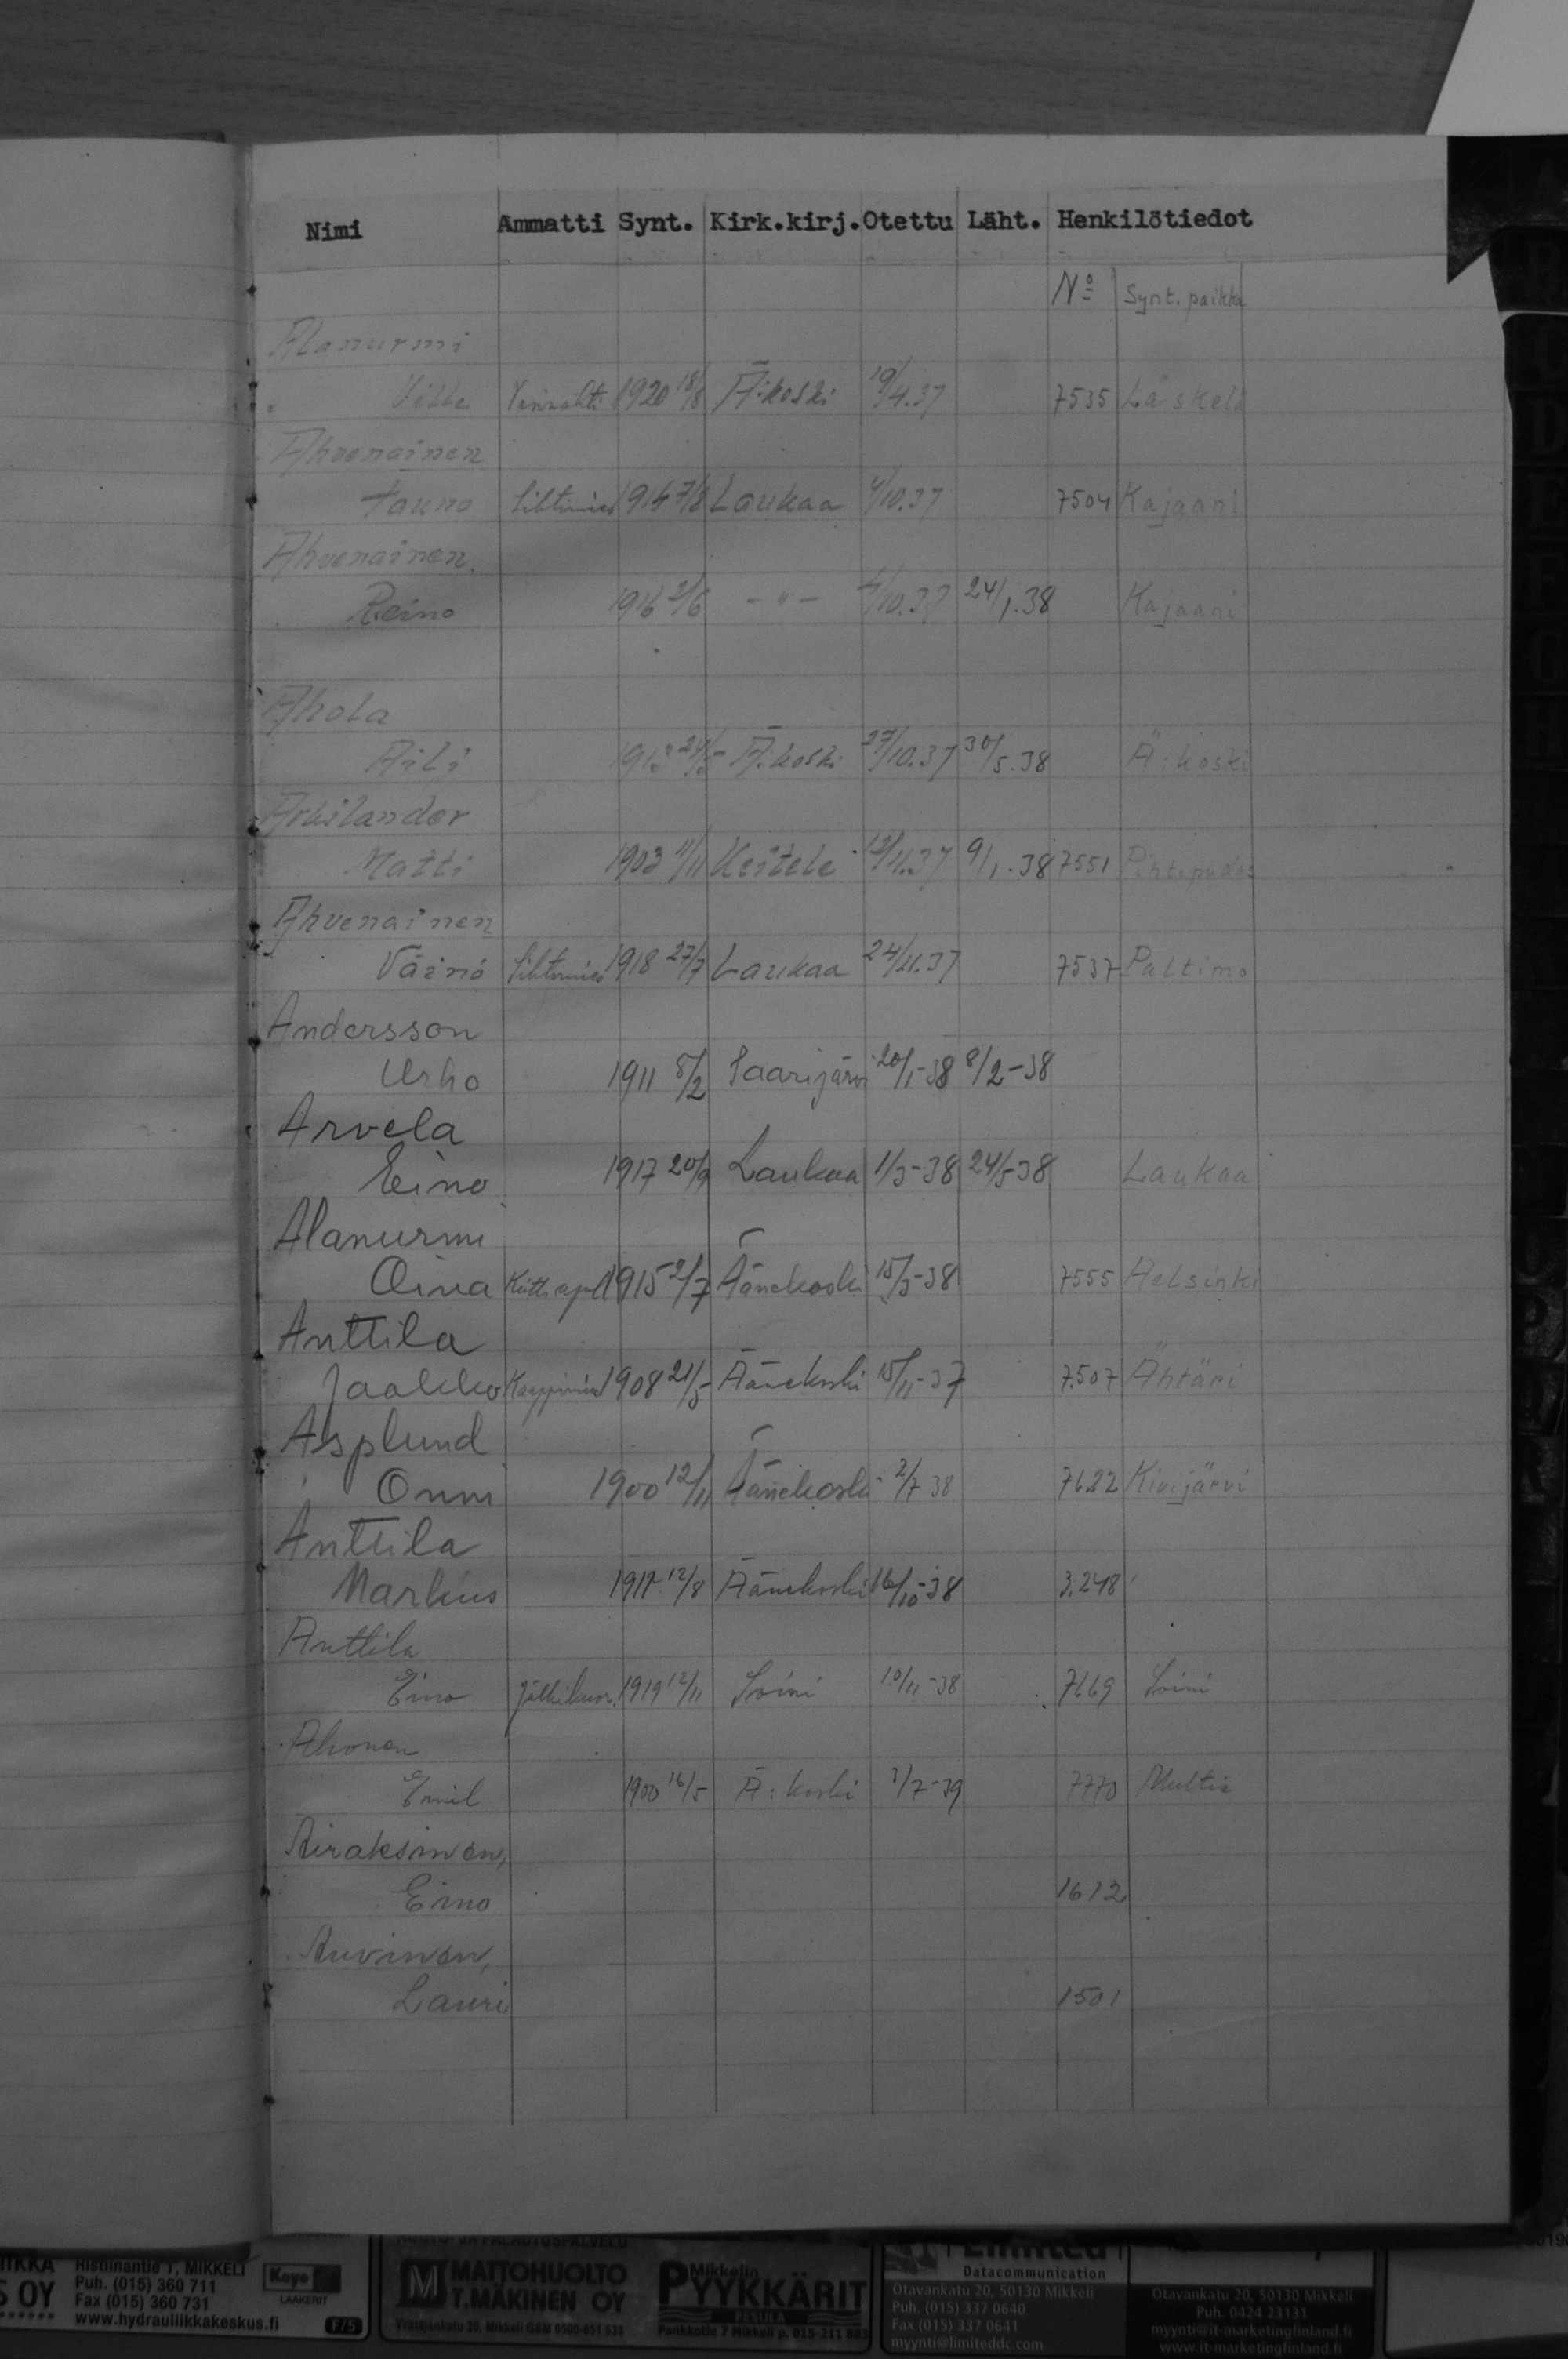 Nimi Ammatti Synt. Kirk.kirj. Otettu Läht. Henkilötiedot
Nº Synt. paikka
Alanurmi
1920 18/8 Ä:koski 19/4.37 7535 Läskelä
Ahvenainen
Tauno 7/8 Laukaa 4/10.37 7504 Kajaani
Ahvenainen
Reino 1916 2/6 -"- 4/10.37 24/1.38 Kajaani
Ahola
Aili Ä:koski 27/10.37 30/5.38 Ä:koski
Matti 1903 11/11 Keitele 12/11.37 9/1.38 7551 Pihtipudas
Ahvenainen
Väinö 1918 27/7 Laukaa 24/11.37 7537 Paltimo
Andersson
Urho 1911 8/2 Saarijärvi 20/1-38 8/2-38
Arvela
Eino 1917 20/9 Laukaa 1/3-38 24/5-38 Laukaa
Alanurmi
Oiva 1915 2/7 Äänekoski 15/3-38 7555 Helsinki
Anttila
Jaakko 1908 21/5 Äänekoski 15/11-37 7507 Ähtäri
Asplund
Onni 1900 12/11 Äänekoski 2/7 38 7622 Kivijärvi
Anttila
Markus 12/8 Äänekoski 16/10-38 3.248
Anttila
Eino 1919 12/11 Soini 10/11-38 7669 Soini
Ahonen
Emil 1900 16/5 Ä:koski 3/7-39 7770 Multia
Airaksinen,
Eino 1612
Auvinen,
Lauri 1501
Ristiinantie 1, MIKKELI
OY Puh. (015) 360 711
Fax (015) 360 731
www.hydrauliikkakeskus.fi
Koyo
LAAKERIT
F/5
MATTOHUOLTO
T.MÄKINEN OY
Mikkelin
PYYKKÄRIT
PESULA
Limited
Datacommunication
Otavankatu 20, 50130 Mikkeli
Puh. (015) 337 0640
Fax (015) 337 0641
myynti@limiteddc.com
Otavankatu 20, 50130 Mikkeli
Puh. 0424 23131
myynti@it-marketingfinland.fi
www.it-marketingfinland.fi